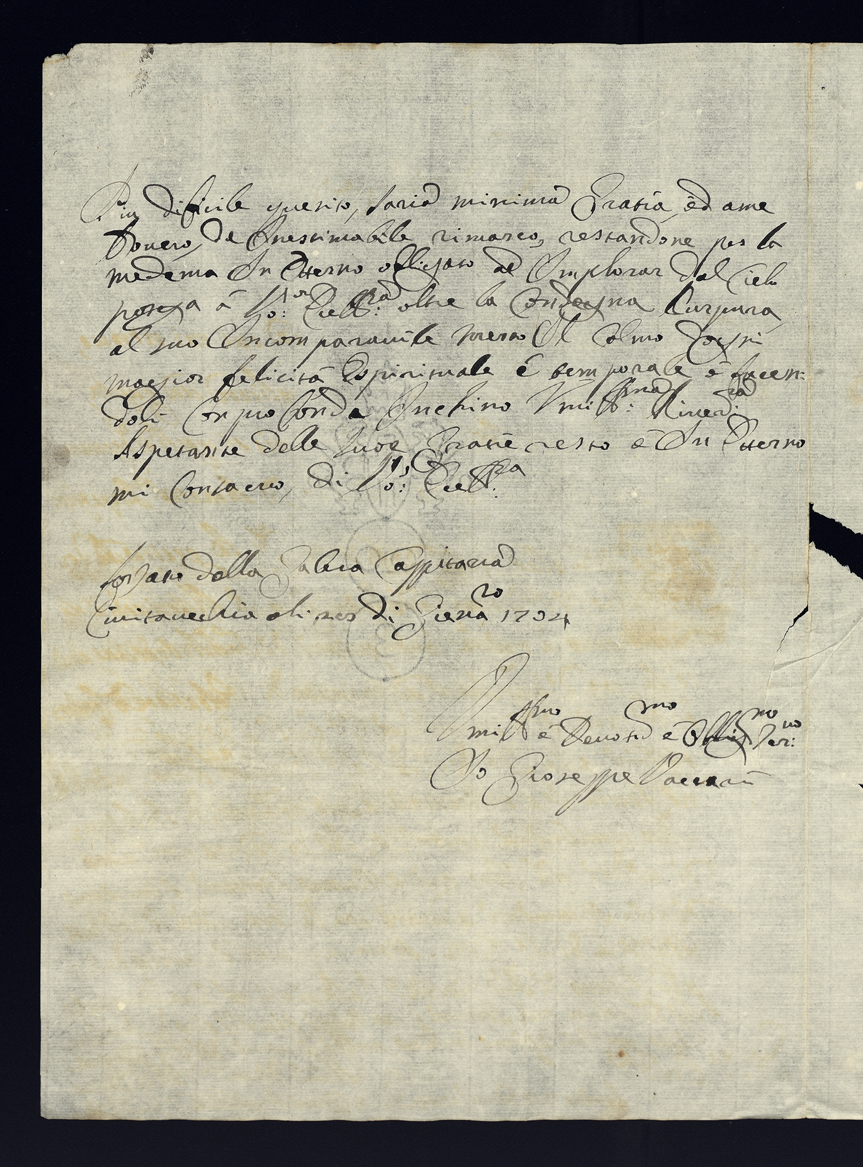 Piu dificile quesito, saria minima Gratia ed ame
Povero, de Inestimabile rimarco, restandone per la
medema In Eterno obligato ad Implorar dal Cielo
à V.ra Ecc.za oltre la Condegna Purpura
al suo Incomparabile merto Il colmo d'ogni
magior felicità Espirituale è temporale è facen:
doli Con profonda Inchino Umiss.ma River.za
Aspetante delle sue Gratie resto è In Eterno
mi Consacro, di V.ra Ecc.za
Forzato della Galera Cappitana
Civitavechia di Gena.ro 1794
Umiss.mo è Devot.mo è Oblig.mo Ser.vo
Io Gioseppe